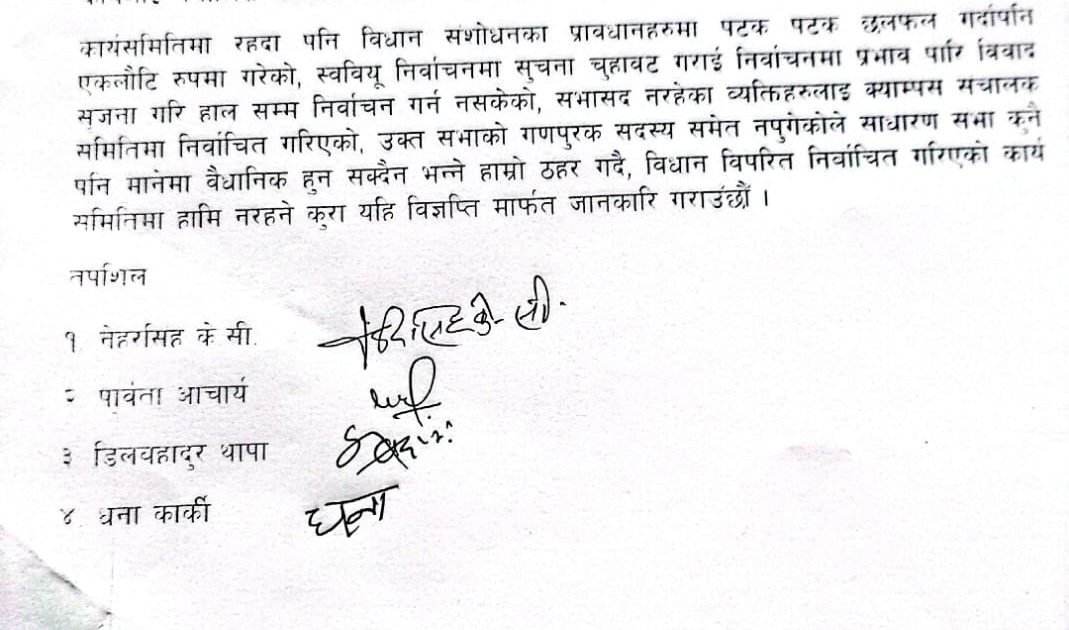 कार्यसमितिमा रहदा पनि विधान संशोधनका प्रावधानहरुमा पटक पटक छलफल गर्दापनि
एकलौटि रुपमा गरेको, स्ववियू निर्वाचनमा सुचना चुहावट गराई निर्वाचनमा प्रभाव पारि विवाद
सृजना गरि हाल सम्म निर्वाचन गर्न नसकेको, सभासद नरहेका व्यक्तिहरुलाइ क्याम्पस सचालक
समितिमा निर्वाचित गरिएको, उक्त सभाको गणपुरक सदस्य समेत नपुगेकोले साधारण सभा कुनै
पनि मानेमा वैधानिक हुन सक्दैन भन्ने हाम्रो ठहर गदै, विधान विपरित निर्वाचित गरिएको कार्य
समितिमा हामि नरहने कुरा यहि विज्ञप्ति मार्फत जानकारि गराउंछौं ।
तपशिल
१ नेहरसिंह के.सी.
२ पार्वता आचार्य
३ डिलवहादुर थापा
४ धना कार्की धना